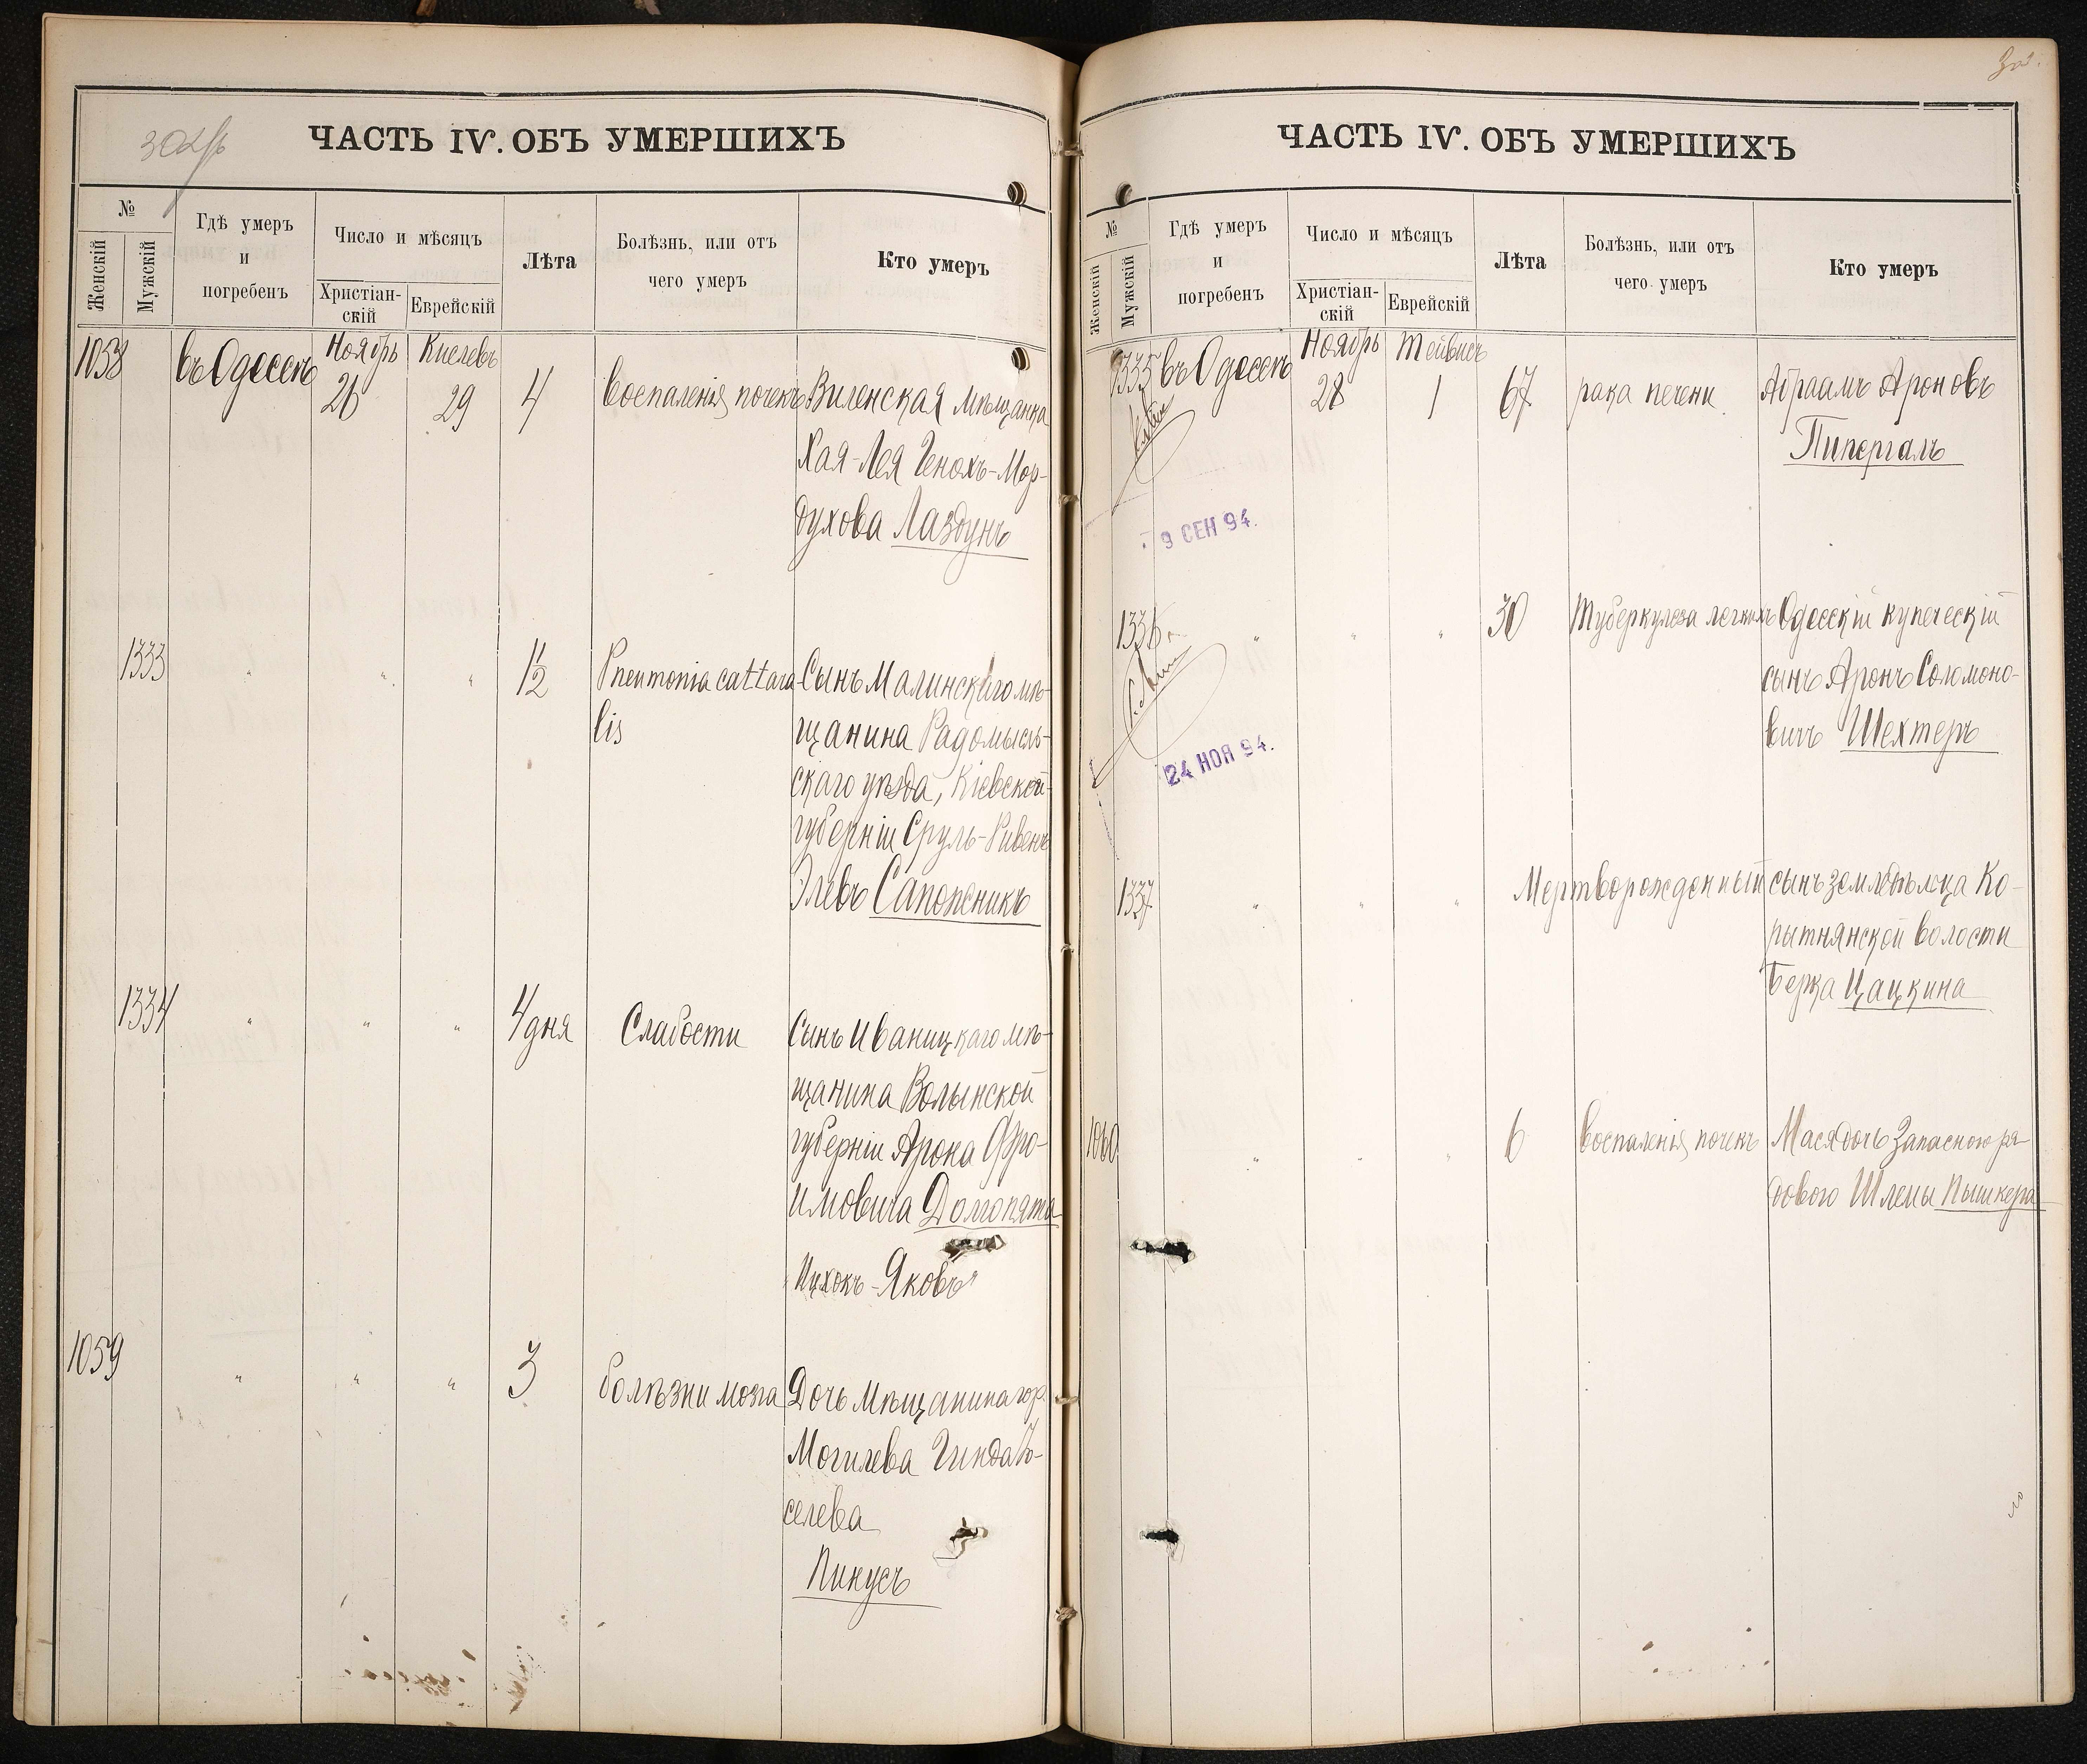 ЧАСТЬ IV. ОБЪ УМЕРШИХЪ
№
Женскій
Мужскій
Гдѣ умеръ
и
погребенъ
Число и мѣсяцъ
Христіан-
скій
Еврейскій
Лѣта
Болѣзнь, или отъ
чего умеръ
Кто умеръ
1058 въ Одессѣ Ноябрь 26 Кислевъ 29 4 Воспаленія почекъ Виленская мѣщанка
Хая-Лея Генохъ-Мор-
духова Лаздунъ
1333 " " " 1½ Pneumonia cattara- Сынъ Малинскаго мѣ-
lis щанина Радомысль-
скаго уѣзда, Кіевской
губерніи Сруль-Ривенъ
Элевъ Сапожникъ
1334 " " " 4 дня Слабости Сынъ Иваницкаго мѣ-
щанина Волынской
губерніи Арона Фро-
имовича Долгопята
Ицхокъ-Яковъ
1059 " " " 3 болѣзни мозга Дочь мѣщанина гор.
Могилева Гинда Іо-
селева
Пинусъ
ЧАСТЬ IV. ОБЪ УМЕРШИХЪ
№
Женскій
Мужскій
Гдѣ умеръ
и
погребенъ
Число и мѣсяцъ
Христіан-
скій
Еврейскій
Лѣта
Болѣзнь, или отъ
чего умеръ
Кто умеръ
1335 въ Одессѣ Ноябрь 28 Тейвисъ 1 67 рака печени Абраамъ Ароновъ
Пипергаль
9 СЕН 94.
1336 " " " 30 Туберкулеза легкихъ Одесскій купеческій
сынъ Аронъ Соломоно-
вичъ Шехтеръ
24 НОЯ 94.
1337 " " " Мертворожденный сынъ земледѣльца Ко-
рытнянской волости
Берка Цацкина
1060 " " " 6 Воспаленія почекъ Мася дочь запасного ря-
дового Шлемы Пышкера